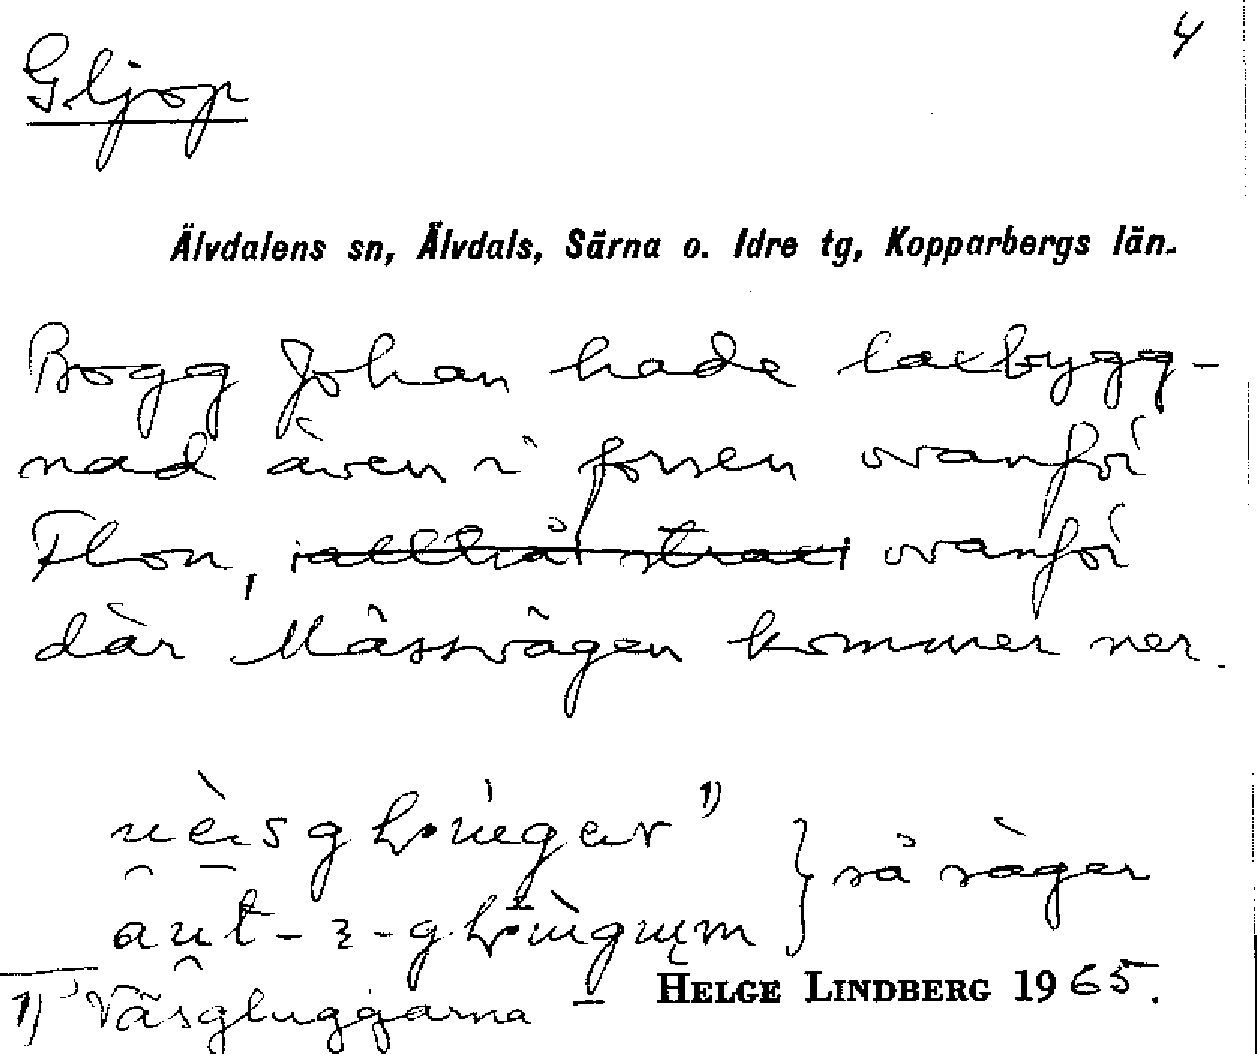 4
Gljop
Älvdalens sn, Älvdals, Särna o. Idre tg, Kopparbergs län.
Bogg Johan hade laxbygg-
nad även i forsen ovanför
Flon, ovanför
där Mässvägen kommer ner.
1)
så säger
1) Väsgluggarna
HELGE LINDBERG 1965.